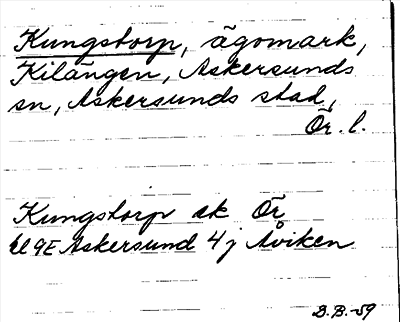 Kungstorp, ägomark,
Kilängen, Askersunds
sn, Askersunds stad,
Ör. l.
Kungstorp ek Ör
9E Askersund 4j Åviken
B.B.-59